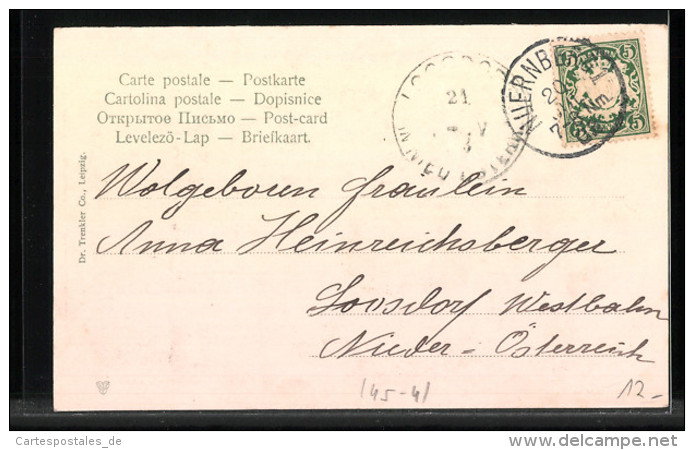 Carte postale — Postkarte
Cartolina postale — Dopisnice
Открытое Письмо — Post-card
Levelezö-Lap — Briefkaart.
LOOSDOR
21
NUERNBE
20
5
5
Dr. Trenkler Co., Leipzig.
Wolgeboren Fräulein
Anna Heinreichsberger
Loosdorf Westbahn
Nieder-Österreich
145-41
12-
Cartespostales_de
www.delcampe.net